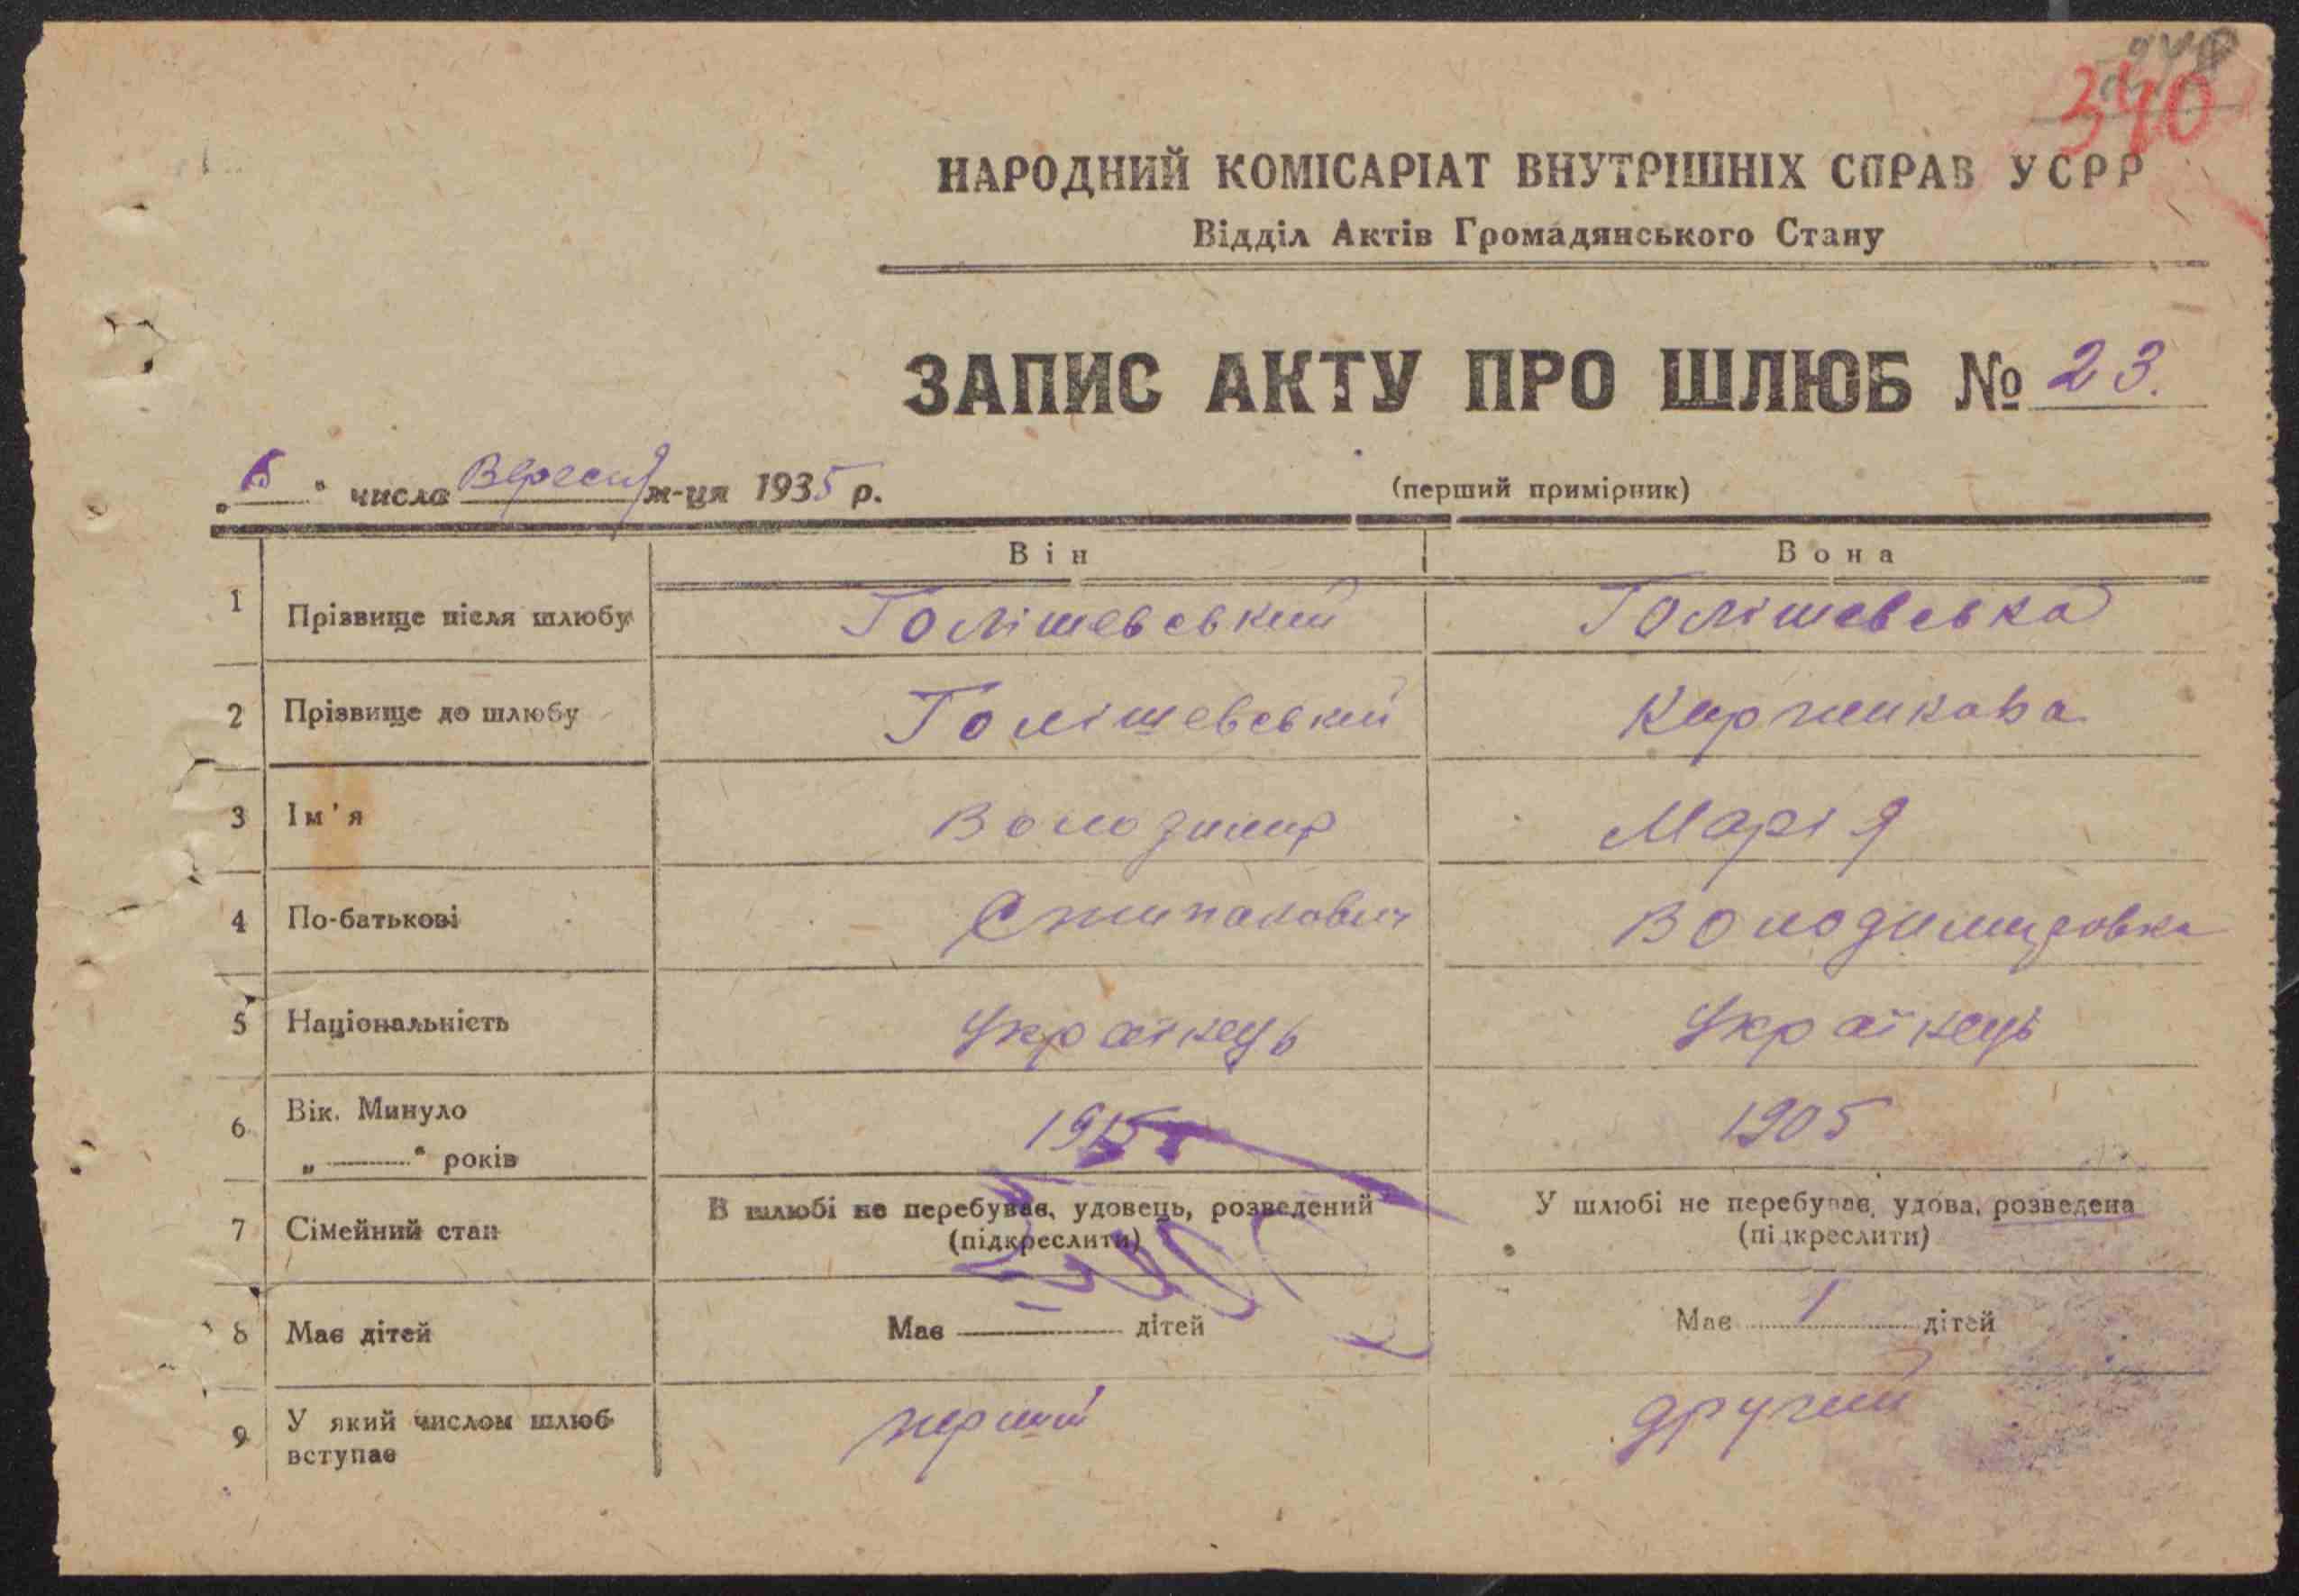 340
НАРОДНИЙ КОМІСАРІАТ ВНУТРІШНІХ СПРАВ УСРР
Відділ Актів Громадянського Стану
ЗАПИС АКТУ ПРО ШЛЮБ № 23.
„ " числа Вересня м-ця 1935 р. (перший примірник)
Він Вона
1 Прізвище після шлюбу Голішевський Голішевська
2 Прізвище до шлюбу Голішевський
3 Ім'я Володимир Марія
4 По-батькові Володимировна
5 Національність Українець Українець
6 Вік. Минуло 1915 1905
„ " років
7 Сімейний стан В шлюбі не перебуває, удовець, розведений У шлюбі не перебуває, удова, розведена
(підкреслити) (підкреслити)
8 Має дітей Має дітей Має 1 дітей
9 У який числом шлюб вступає перший другий